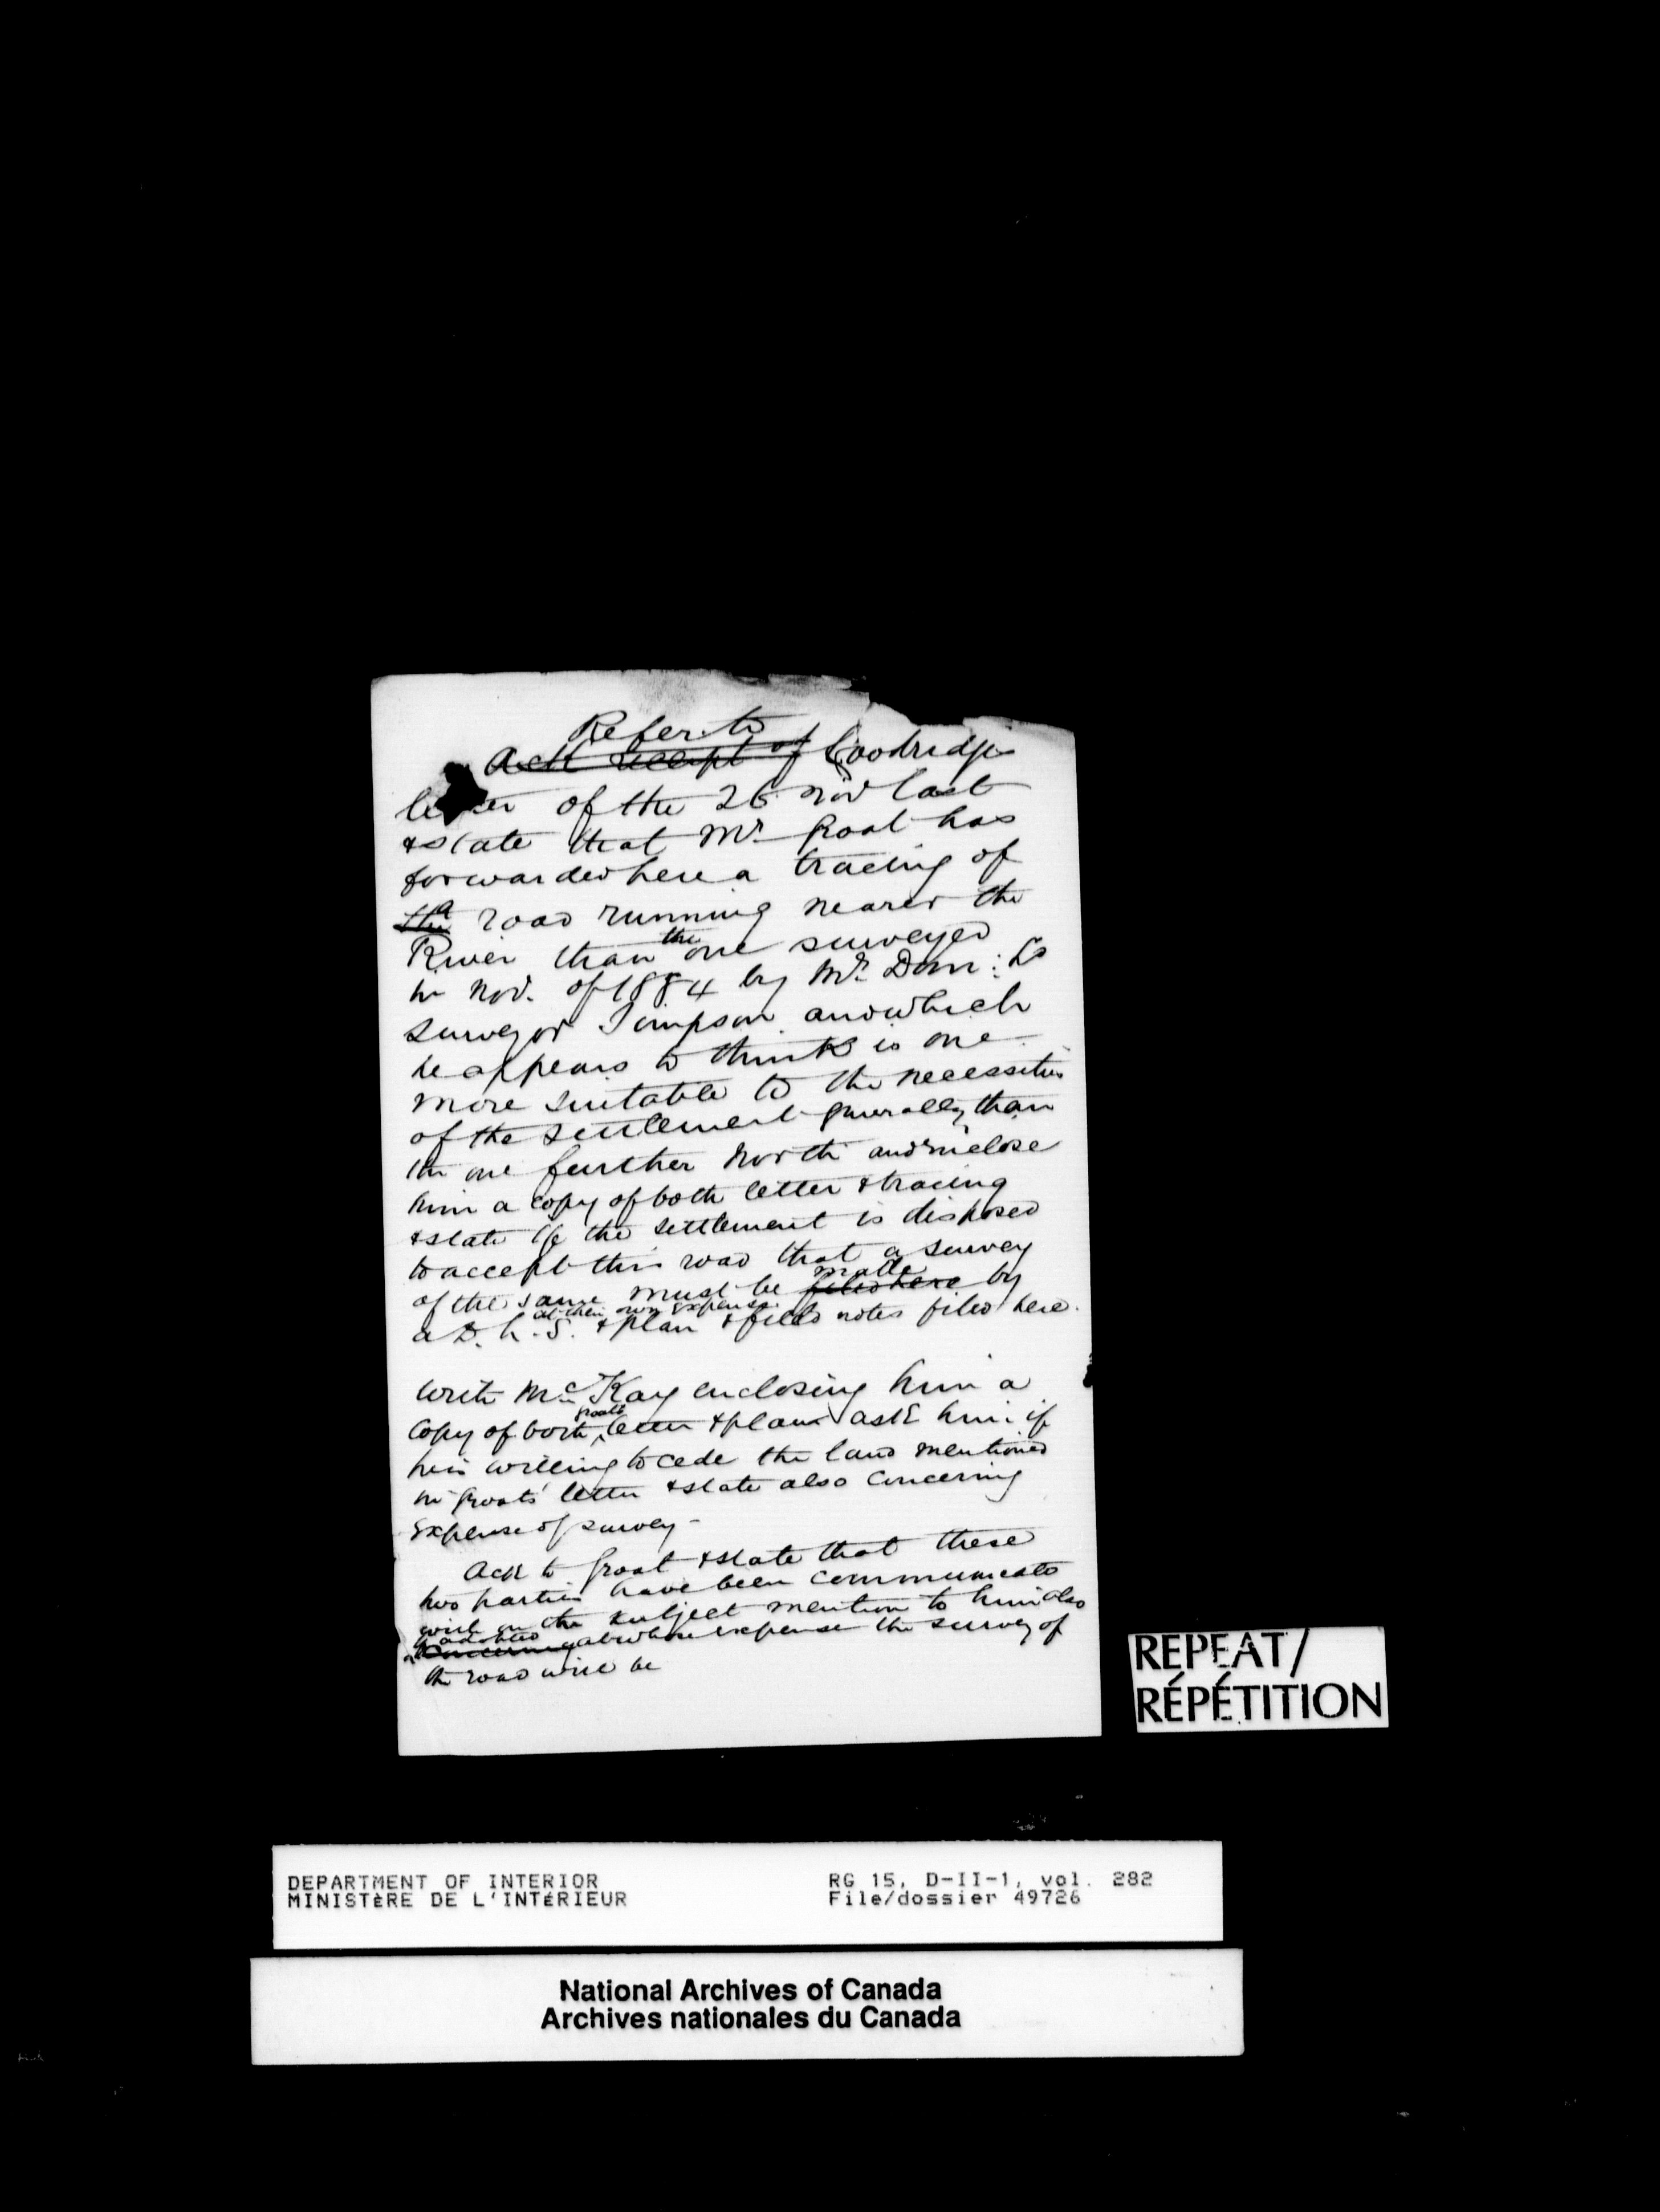 Refer to
~~Ack receipt of~~ Goodridge
letter of the 26 Nov last
& state that Mr Groat has
forwarded here a tracing of
~~the~~ a road running nearer the
River than the one surveyed
in Nov. of 1884 by Mr. Dom: Ld
Surveyor Simpson and which
he appears to think is one
more suitable to the necessities
of the settlement generally than
the one further North and inclose
him a copy of both letter & tracing
& state if the settlement is disposed
to accept this road that a survey
of the same must be ~~filed here~~ made by
a D. L. S. at their own expense & plan & field notes filed here.
Write McKay enclosing him a
copy of both Groats letter & plan ask him if
he is willing to cede the land mentioned
in Groats' letter & state also concerning
expense of survey -
Ack to Groat & state that these
two parties have been communicated
with on the subject mention to him also
~~concerning~~ at whose expense the survey of
the road will be
REPEAT/
RÉPÉTITION
DEPARTMENT OF INTERIOR
MINISTÈRE DE L'INTÉRIEUR
RG 15, D-II-1, vol. 282
File/dossier 49726
National Archives of Canada
Archives nationales du Canada